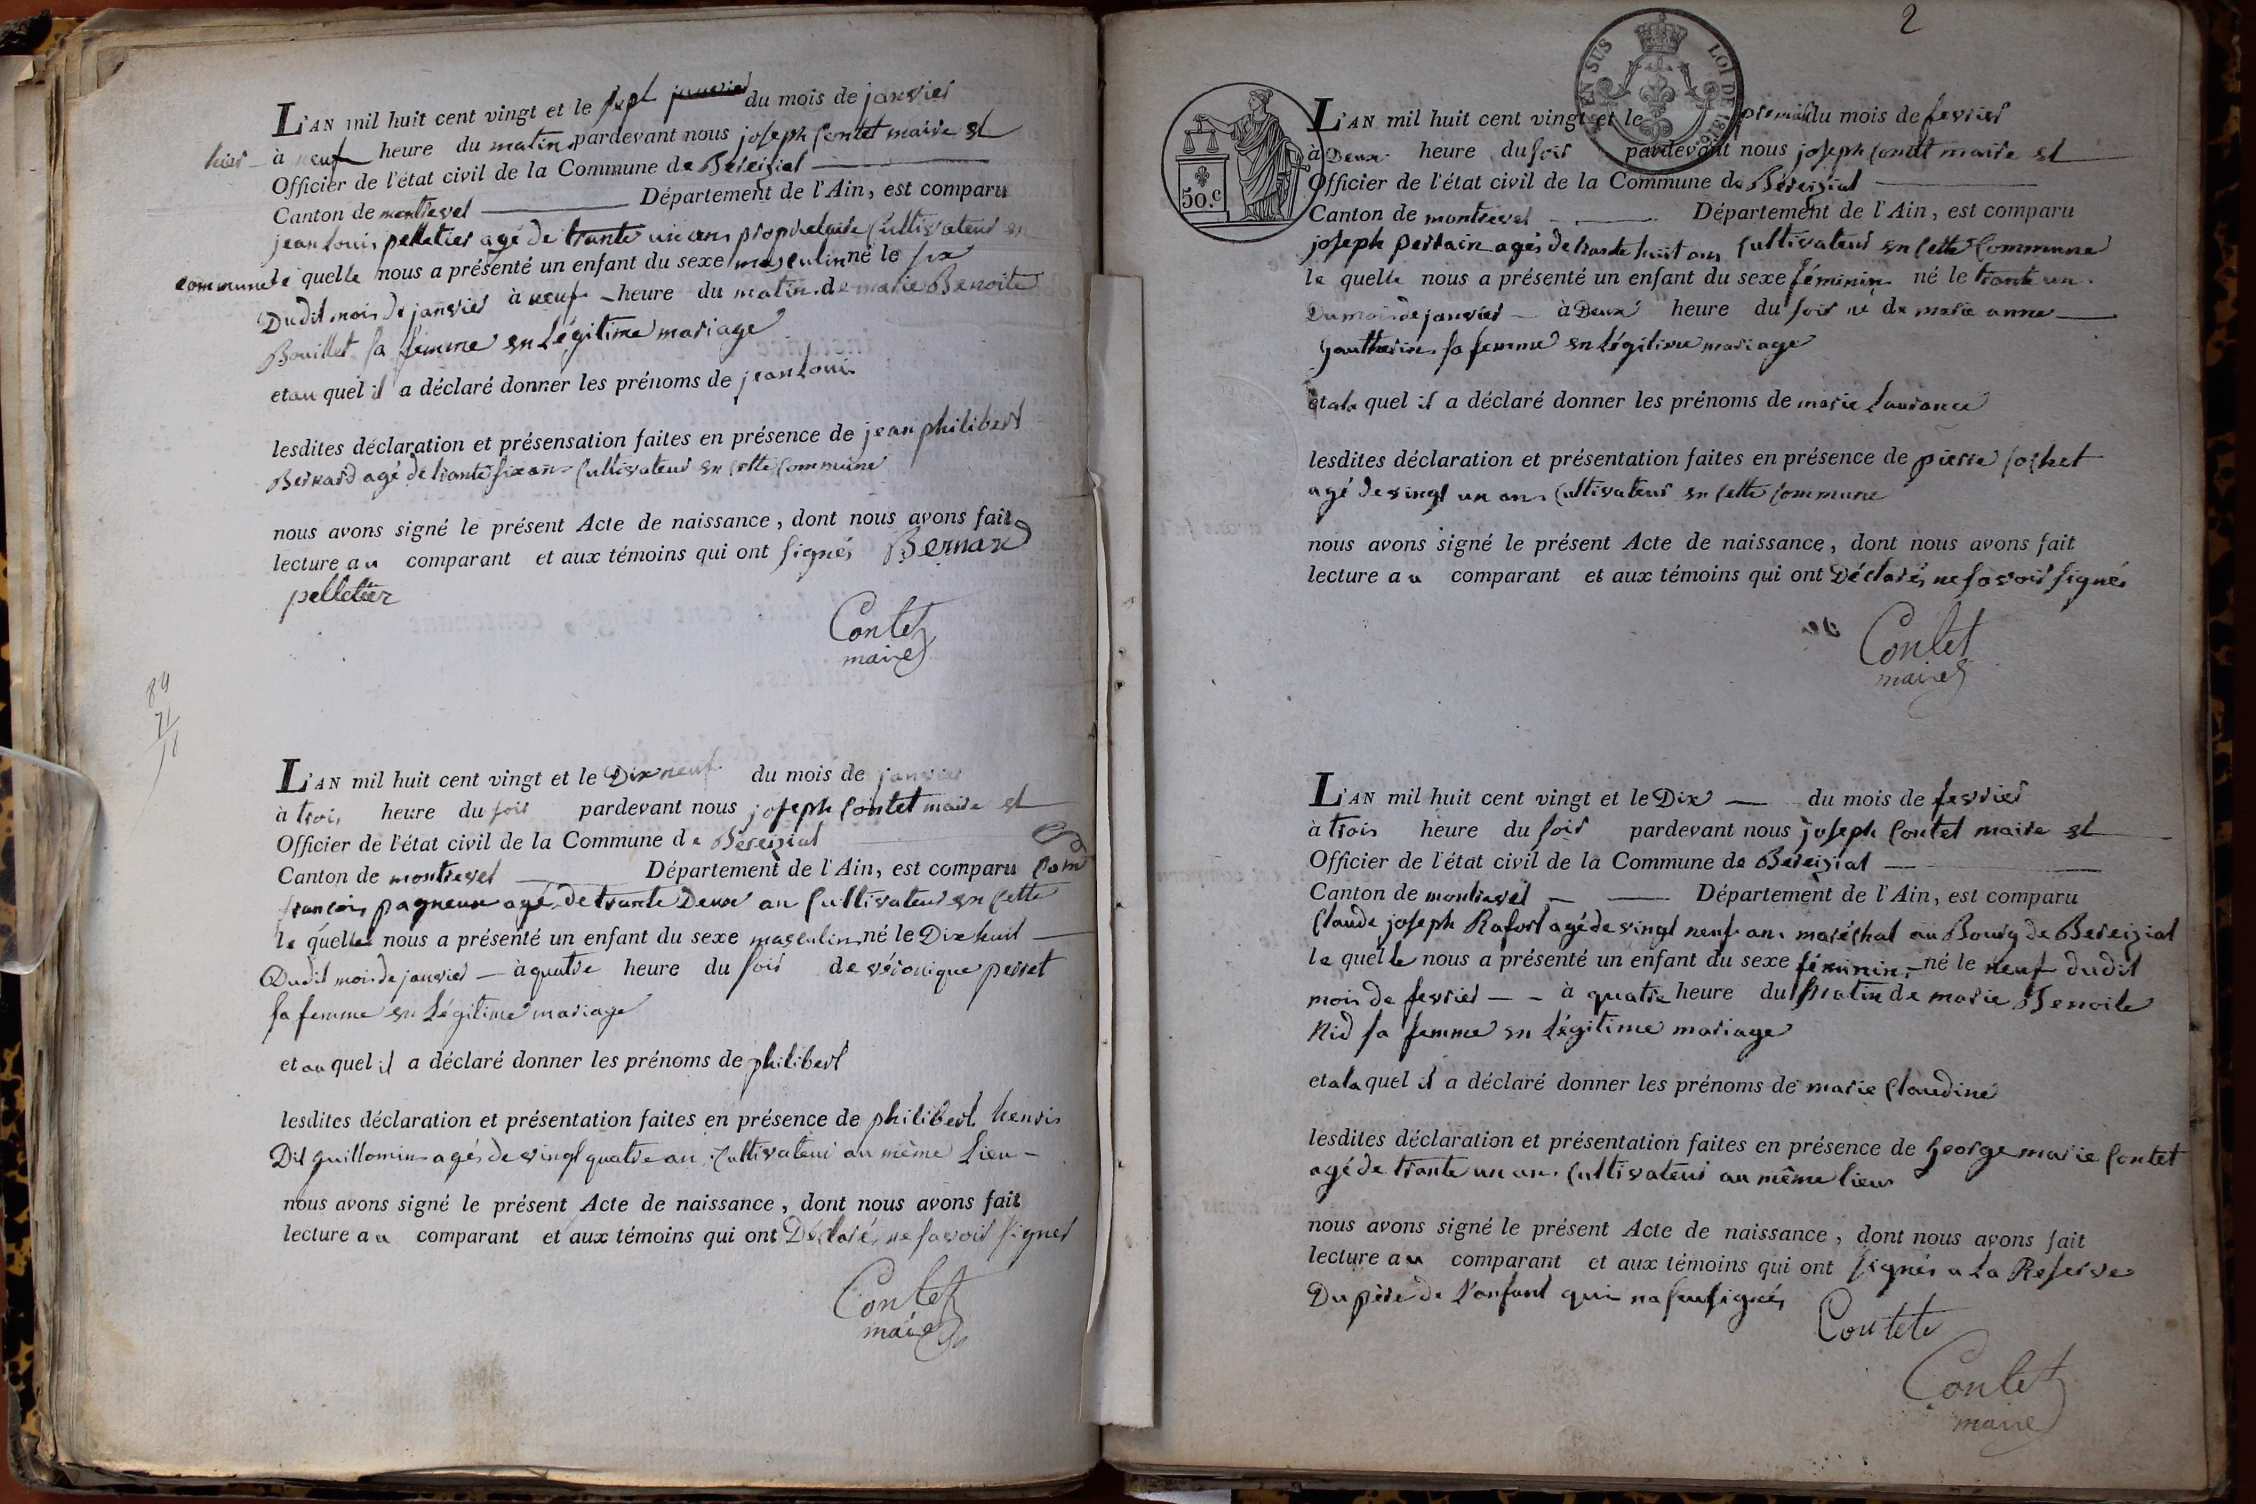 L'AN mil huit cent vingt et le sept janvier du mois de janvier
à neuf heure du matin pardevant nous joseph Contet maire et
Officier de l'état civil de la Commune de Béreiziat
Canton de montrevel Département de l'Ain, est comparu
jean louis pelletier agé de trante un ans propriétaire Cultivateur en
commune le quelle nous a présenté un enfant du sexe masculin né le six
Dudit mois de janvier à neuf heure du matin de marie Benoite
Bouillet sa femme en Légitime mariage
et au quel il a déclaré donner les prénoms de jean louis
lesdites déclaration et présensation faites en présence de jean philibert
Bernard agé de trante six ans Cultivateur en cette Commune
nous avons signé le présent Acte de naissance, dont nous avons fait
lecture au comparant et aux témoins qui ont signés Bernard
pelletier
Contet
maire
84
71
11
L'AN mil huit cent vingt et le Dix neuf du mois de janvier
à trois heure du soir pardevant nous joseph Contet maire et
Officier de l'état civil de la Commune de Béreiziat
Canton de montrevel Département de l'Ain, est comparu
françois pagneux agé de trante Deux an Cultivateur en cette Com
le quelle nous a présenté un enfant du sexe masculin né le Dix huit
Dudit mois de janvier à quatre heure du soir de véronique perret
sa femme en Légitime mariage
et au quel il a déclaré donner les prénoms de philibert
lesdites déclaration et présentation faites en présence de philibert henri
Dit guillomin agés de vingt quatre an Cultivateur au même Lieu
nous avons signé le présent Acte de naissance, dont nous avons fait
lecture au comparant et aux témoins qui ont Déclarés ne savoir signer
Contet
maire
2
EN SUS LOI DE 1816
50.c
L'AN mil huit cent vingt et le premier du mois de fevrier
à Deux heure du soir pardevant nous joseph Contet maire et
Officier de l'état civil de la Commune de Béreiziat
Canton de montrevel Département de l'Ain, est comparu
joseph pertain agés de trante huit ans Cultivateur en cette Commune
le quelle nous a présenté un enfant du sexe féminin né le trante un
Du mois de janvier à Deux heure du soir né de marie anne
gautherin sa femme en Légitime mariage
et a la quel il a déclaré donner les prénoms de marie laurance
lesdites déclaration et présentation faites en présence de pierre Cochet
agé de vingt un ans Cultivateur en cette Commune
nous avons signé le présent Acte de naissance, dont nous avons fait
lecture au comparant et aux témoins qui ont Déclarés ne savoir signés
Contet
maire
L'AN mil huit cent vingt et le Dix du mois de fevrier
à trois heure du soir pardevant nous joseph Contet maire et
Officier de l'état civil de la Commune de Béreiziat
Canton de montrevel Département de l'Ain, est comparu
Claude joseph Rafort agé de vingt neuf ans maréchal au Bourg de Bereiziat
le quelle nous a présenté un enfant du sexe féminin né le neuf dudit
mois de fevrier à quatre heure du matin de marie Benoite
Nid sa femme en Légitime mariage
et a la quel il a déclaré donner les prénoms de marie Claudine
lesdites déclaration et présentation faites en présence de George marie Contet
agé de trante un an Cultivateur au même lieu
nous avons signé le présent Acte de naissance, dont nous avons fait
lecture au comparant et aux témoins qui ont signés a la Reserve
Du père de L'anfant qui na seu signés
Contet
Contet
maire